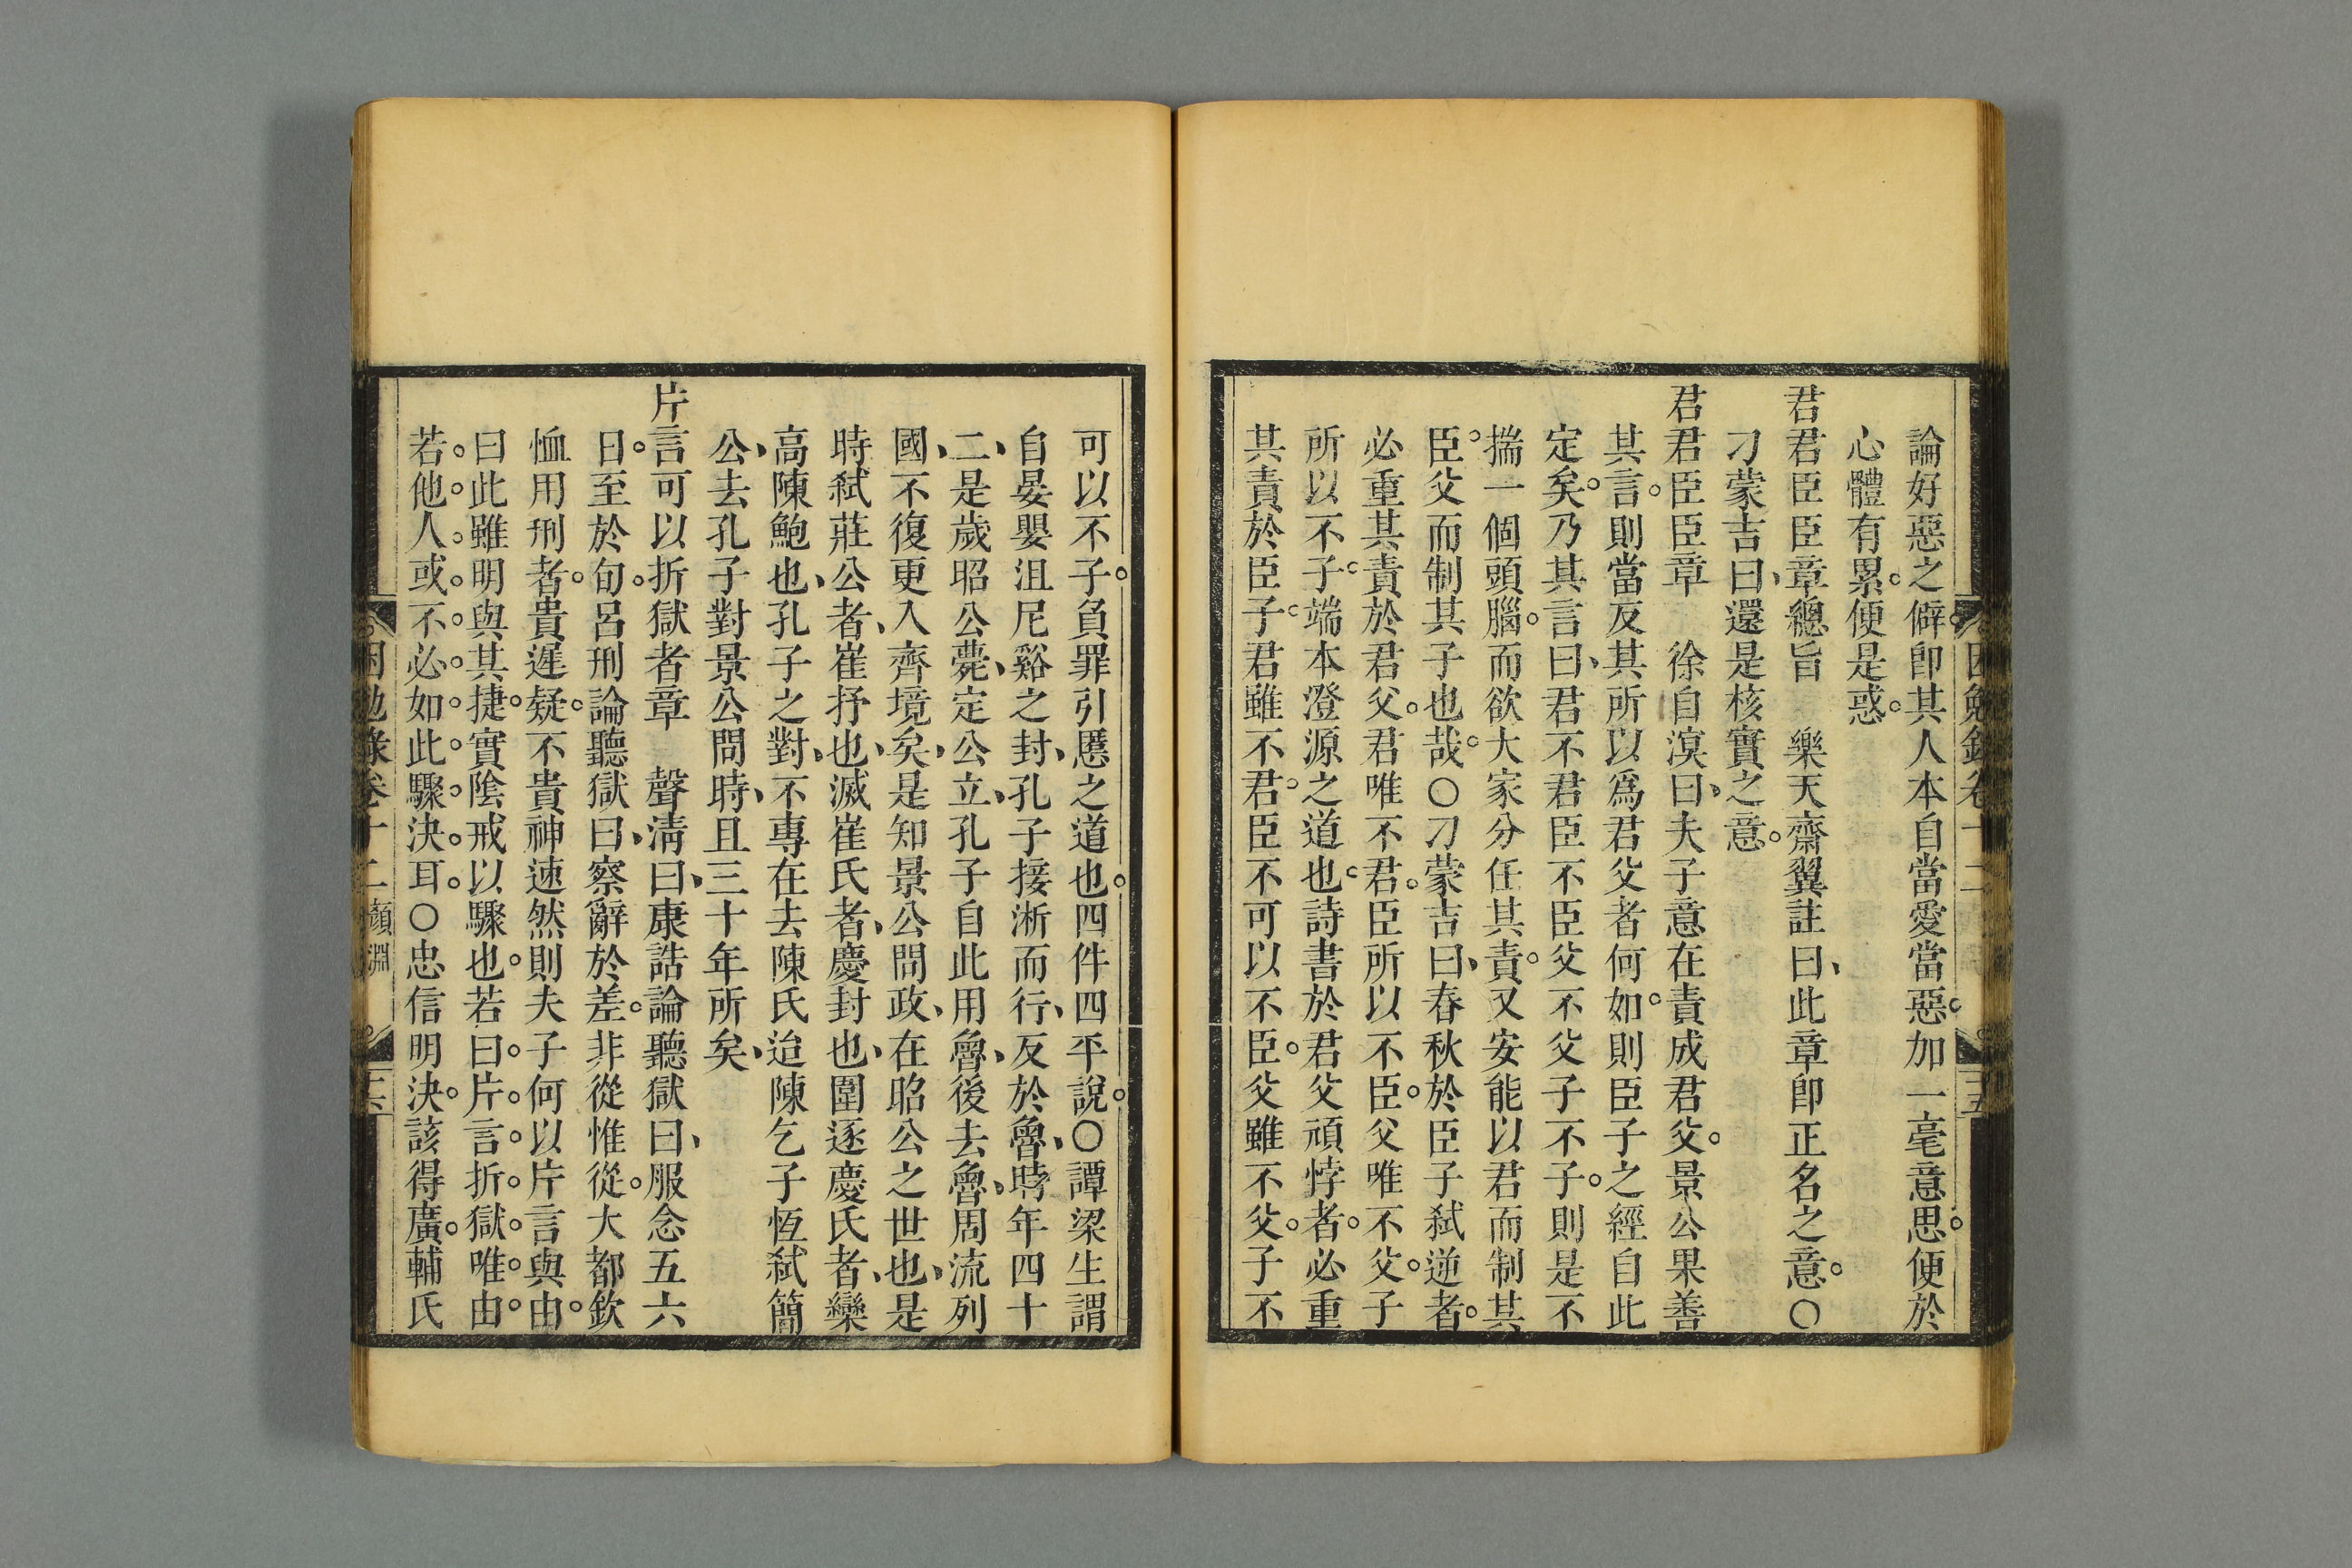 論好惡之僻。卽其人本自當愛當惡。加一毫意思。便於
心體有累。便是惑。
君君臣臣章總旨 樂天齋翼註曰、此章卽正名之意。○
刁蒙吉曰、還是核實之意。
君君臣臣章 徐自溟曰、夫子意在責成君父。景公果善
其言。則當反其所以爲君父者何如。則臣子之經自此
定矣。乃其言曰、君不君臣不臣父不父子不子。則是不
揣一個頭腦。而欲大家分任其責。又安能以君而制其
臣。父而制其子也哉。○刁蒙吉曰、春秋於臣子弑逆者。
必重其責於君父。君唯不君。臣所以不臣。父唯不父。子
所以不子。端本澄源之道也。詩書於君父頑悖者。必重
其責於臣子。君雖不君。臣不可以不臣。父雖不父。子不
可以不子。負罪引慝之道也。四件四平說。○譚梁生謂
自晏嬰沮尼谿之封、孔子接淅而行、反於魯、時年四十
二、是歲昭公薨、定公立、孔子自此用魯、後去魯、周流列
國、不復更入齊境矣、是知景公問政、在昭公之世也、是
時弑莊公者、崔抒也、滅崔氏者、慶封也、圍逐慶氏者、欒
高陳鮑也、孔子之對、不專在去陳氏、迨陳乞子恆弑簡
公、去孔子對景公問時、且三十年所矣、
片言可以折獄者章 聲淸曰、康誥論聽獄曰、服念五六
日。至於旬。呂刑論聽獄曰、察辭於差。非從惟從。大都欽
恤用刑者。貴遲疑。不貴神速然則夫子何以片言與由。
曰此雖明與其捷。實陰戒以驟也。若曰。片。言。折。獄。唯。由。
若。他。人。或。不。必。如。此。驟。決。耳。○忠信明決。該得廣。輔氏
困勉錄卷十二 顏淵